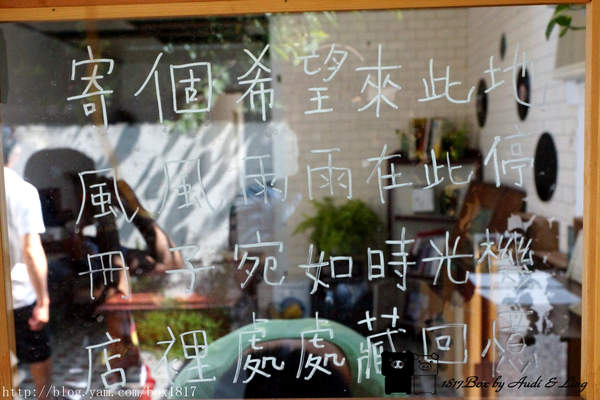 寄個希望來此地
風風雨雨在此停
冊子宛如時光機
店裡處處藏回憶
1817Box by Audi & Ling
http://blog.yam.com/box1817